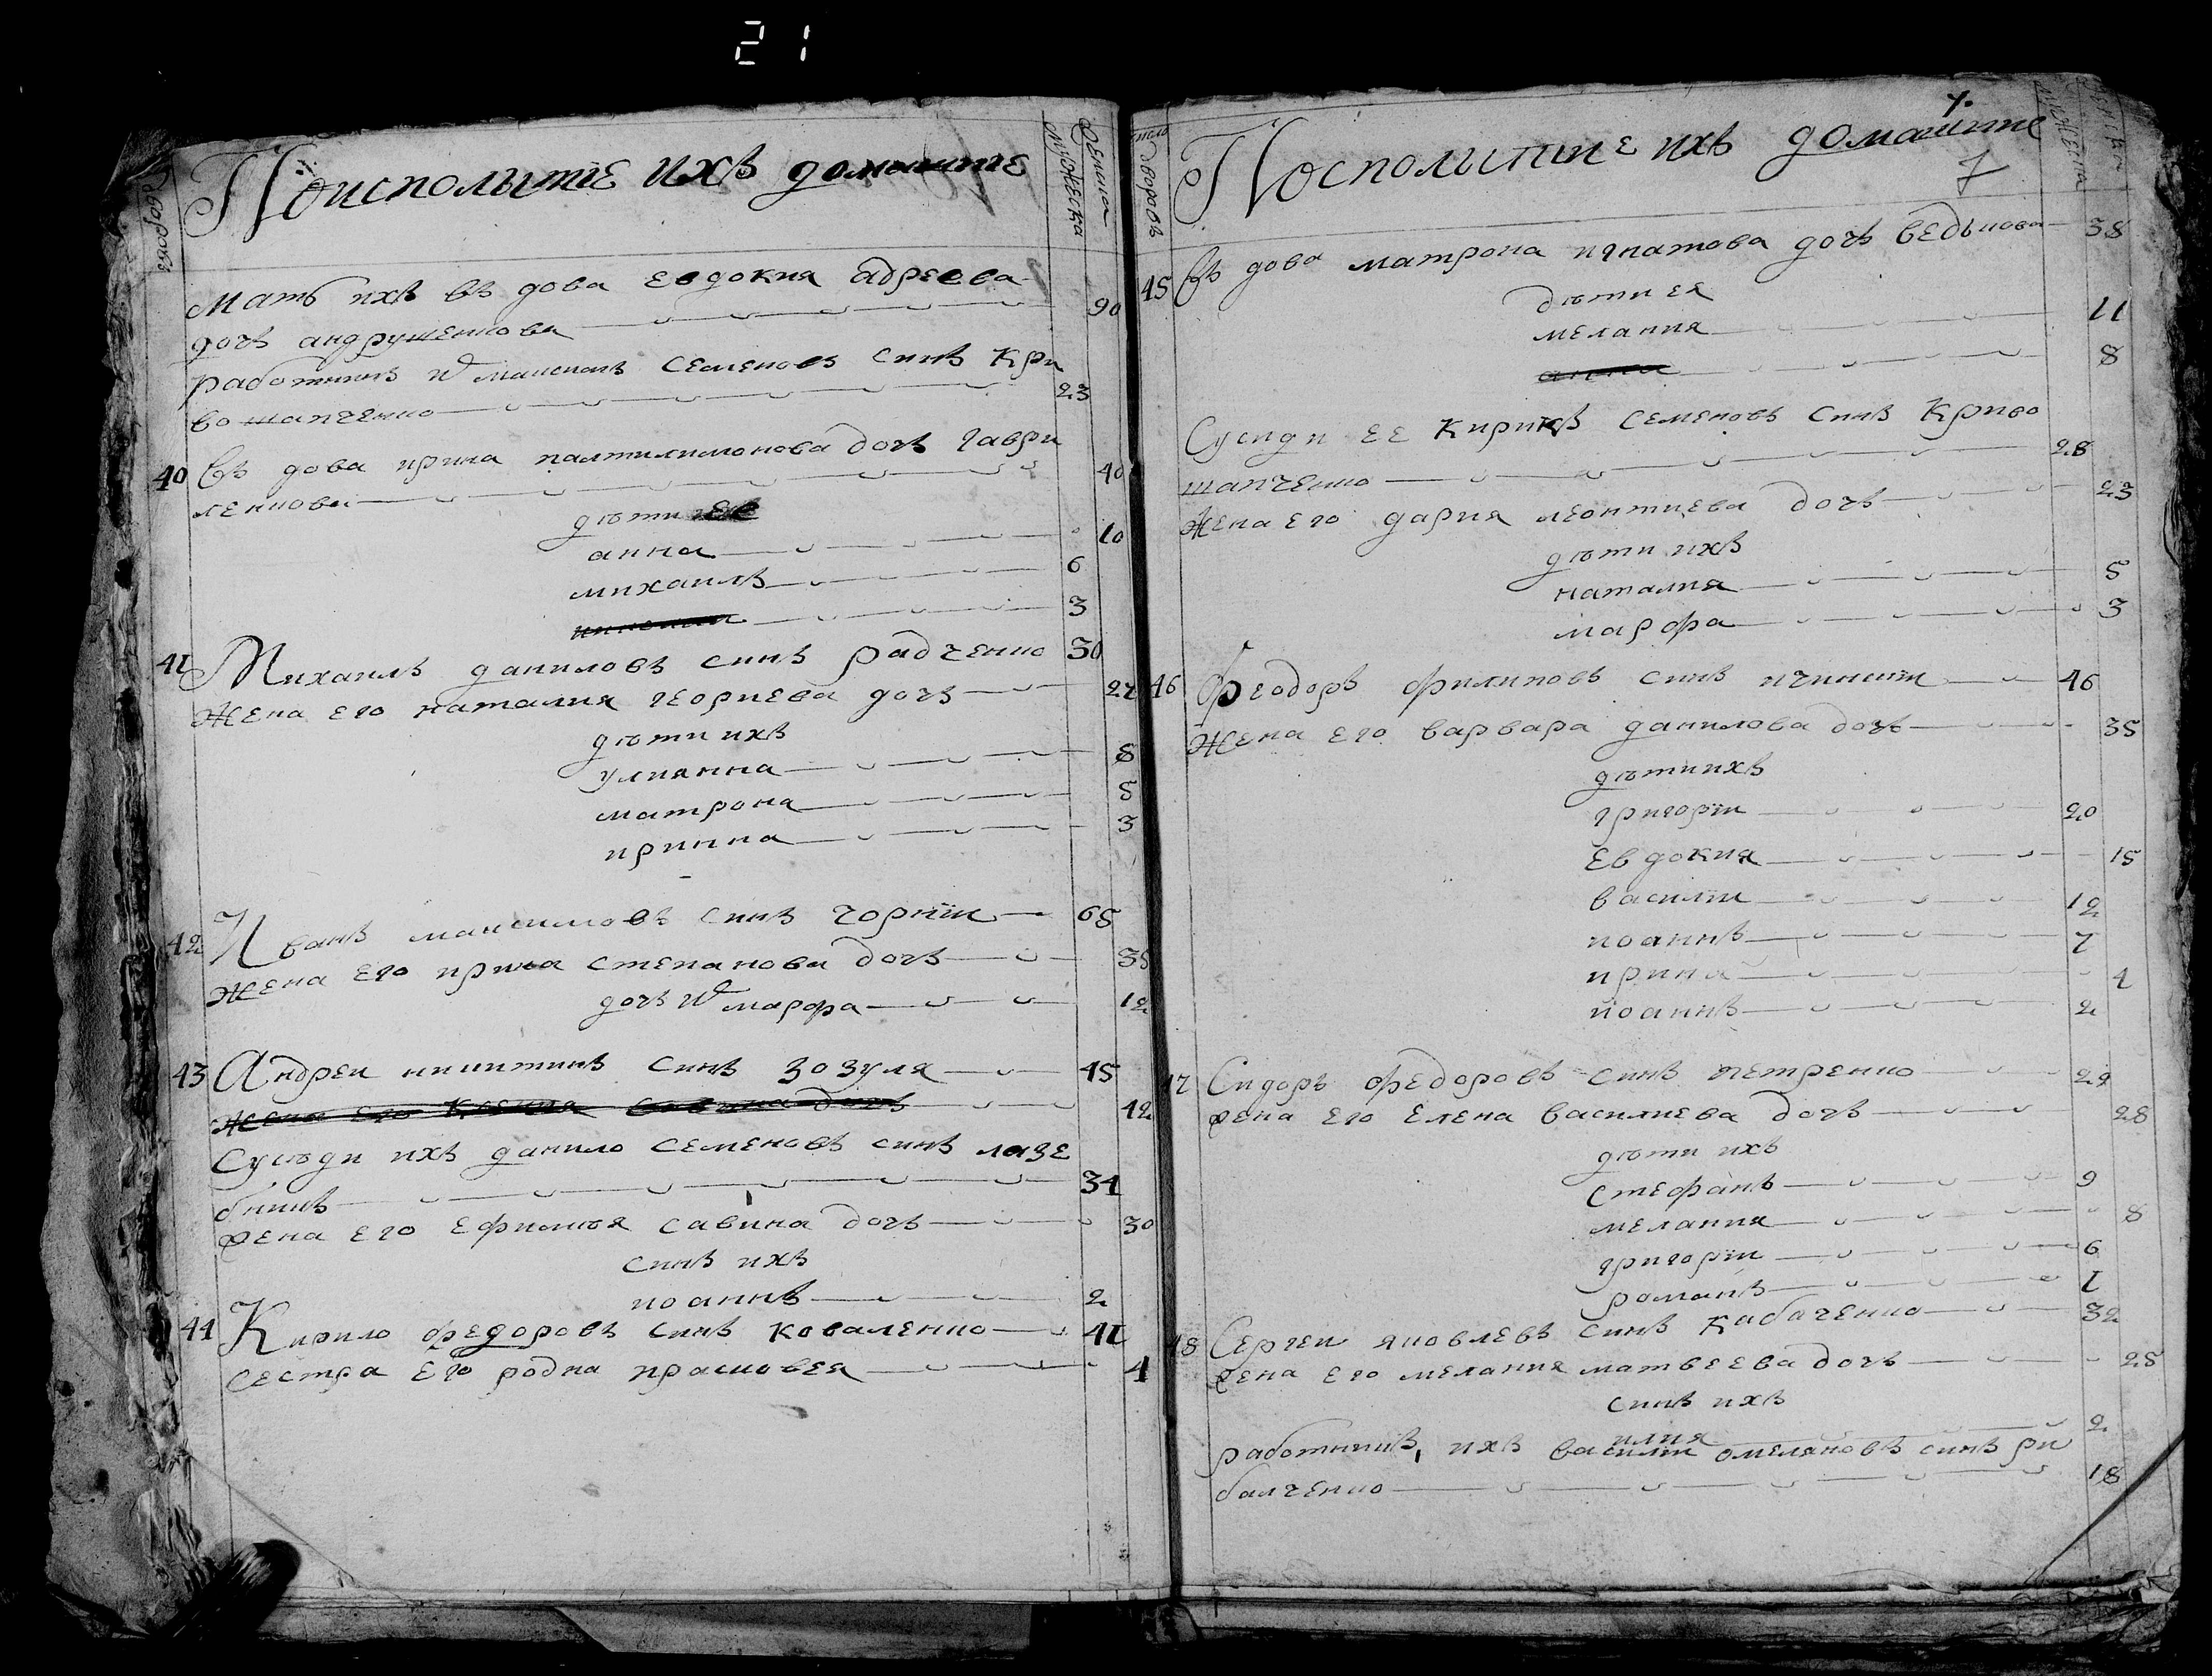 21
Поисполитие ихъ домашние
дворовъ
мужеска
женска
мать ихъ въ дова евдокия адреева
дочъ андрушенкова 90
работникъ максимъ семеновъ синъ кри
вошапченко 23
40 въ дова ирина палтилимонова дочъ гаври
ленкова 40
дѣти ее
анна 10
михаилъ 6
3
41 Михаилъ даниловъ синъ радченко 30
жена его наталия георгиева дочъ 27
дѣти ихъ
улиянна 8
матрона 5
иринна 3
42 Иванъ максимовъ синъ чорнїи 65
жена его ирина степанова дочъ 35
дочъ марфа 12
43 Андреи никитинъ синъ зозуля 45
жена его дочъ 42
Сусѣди ихъ данило семеновъ синъ лазе
бникъ 34
жена его ефимия савина дочъ 30
синъ ихъ
иоаннъ 2
44 Кирило федоровъ синъ коваленко 41
сестра его родна прасковея 4
Посполитие ихъ домашние
7
число дворовъ
мужеска
45 въ дова матрона игнатова дочъ ведькова 38
дѣти ея
мелания 11
анна 8
Сусиди ее кирикъ семеновъ синъ криво
шапченко 28
жена его дария леонтиева дочъ 23
дѣти ихъ
наталия 5
марфа 3
46 Феодоръ филиповъ синъ 46
жена его варвара данилова дочъ 35
дѣти ихъ
григорїи 20
евдокия 15
василїи 12
иоаннъ 7
ирина 4
иоаннъ 2
47 Сидоръ федоровъ синъ петренко 29
жена его елена василиева дочъ 28
дѣти ихъ
стефанъ 9
мелания 8
григорїи 6
романъ 1
48 Сергеи яковлевъ синъ кабаченко 32
жена его мелания матвеева дочъ 25
синъ ихъ
илия 2
работникъ ихъ василїи омеляновъ синъ ри
балченко 18